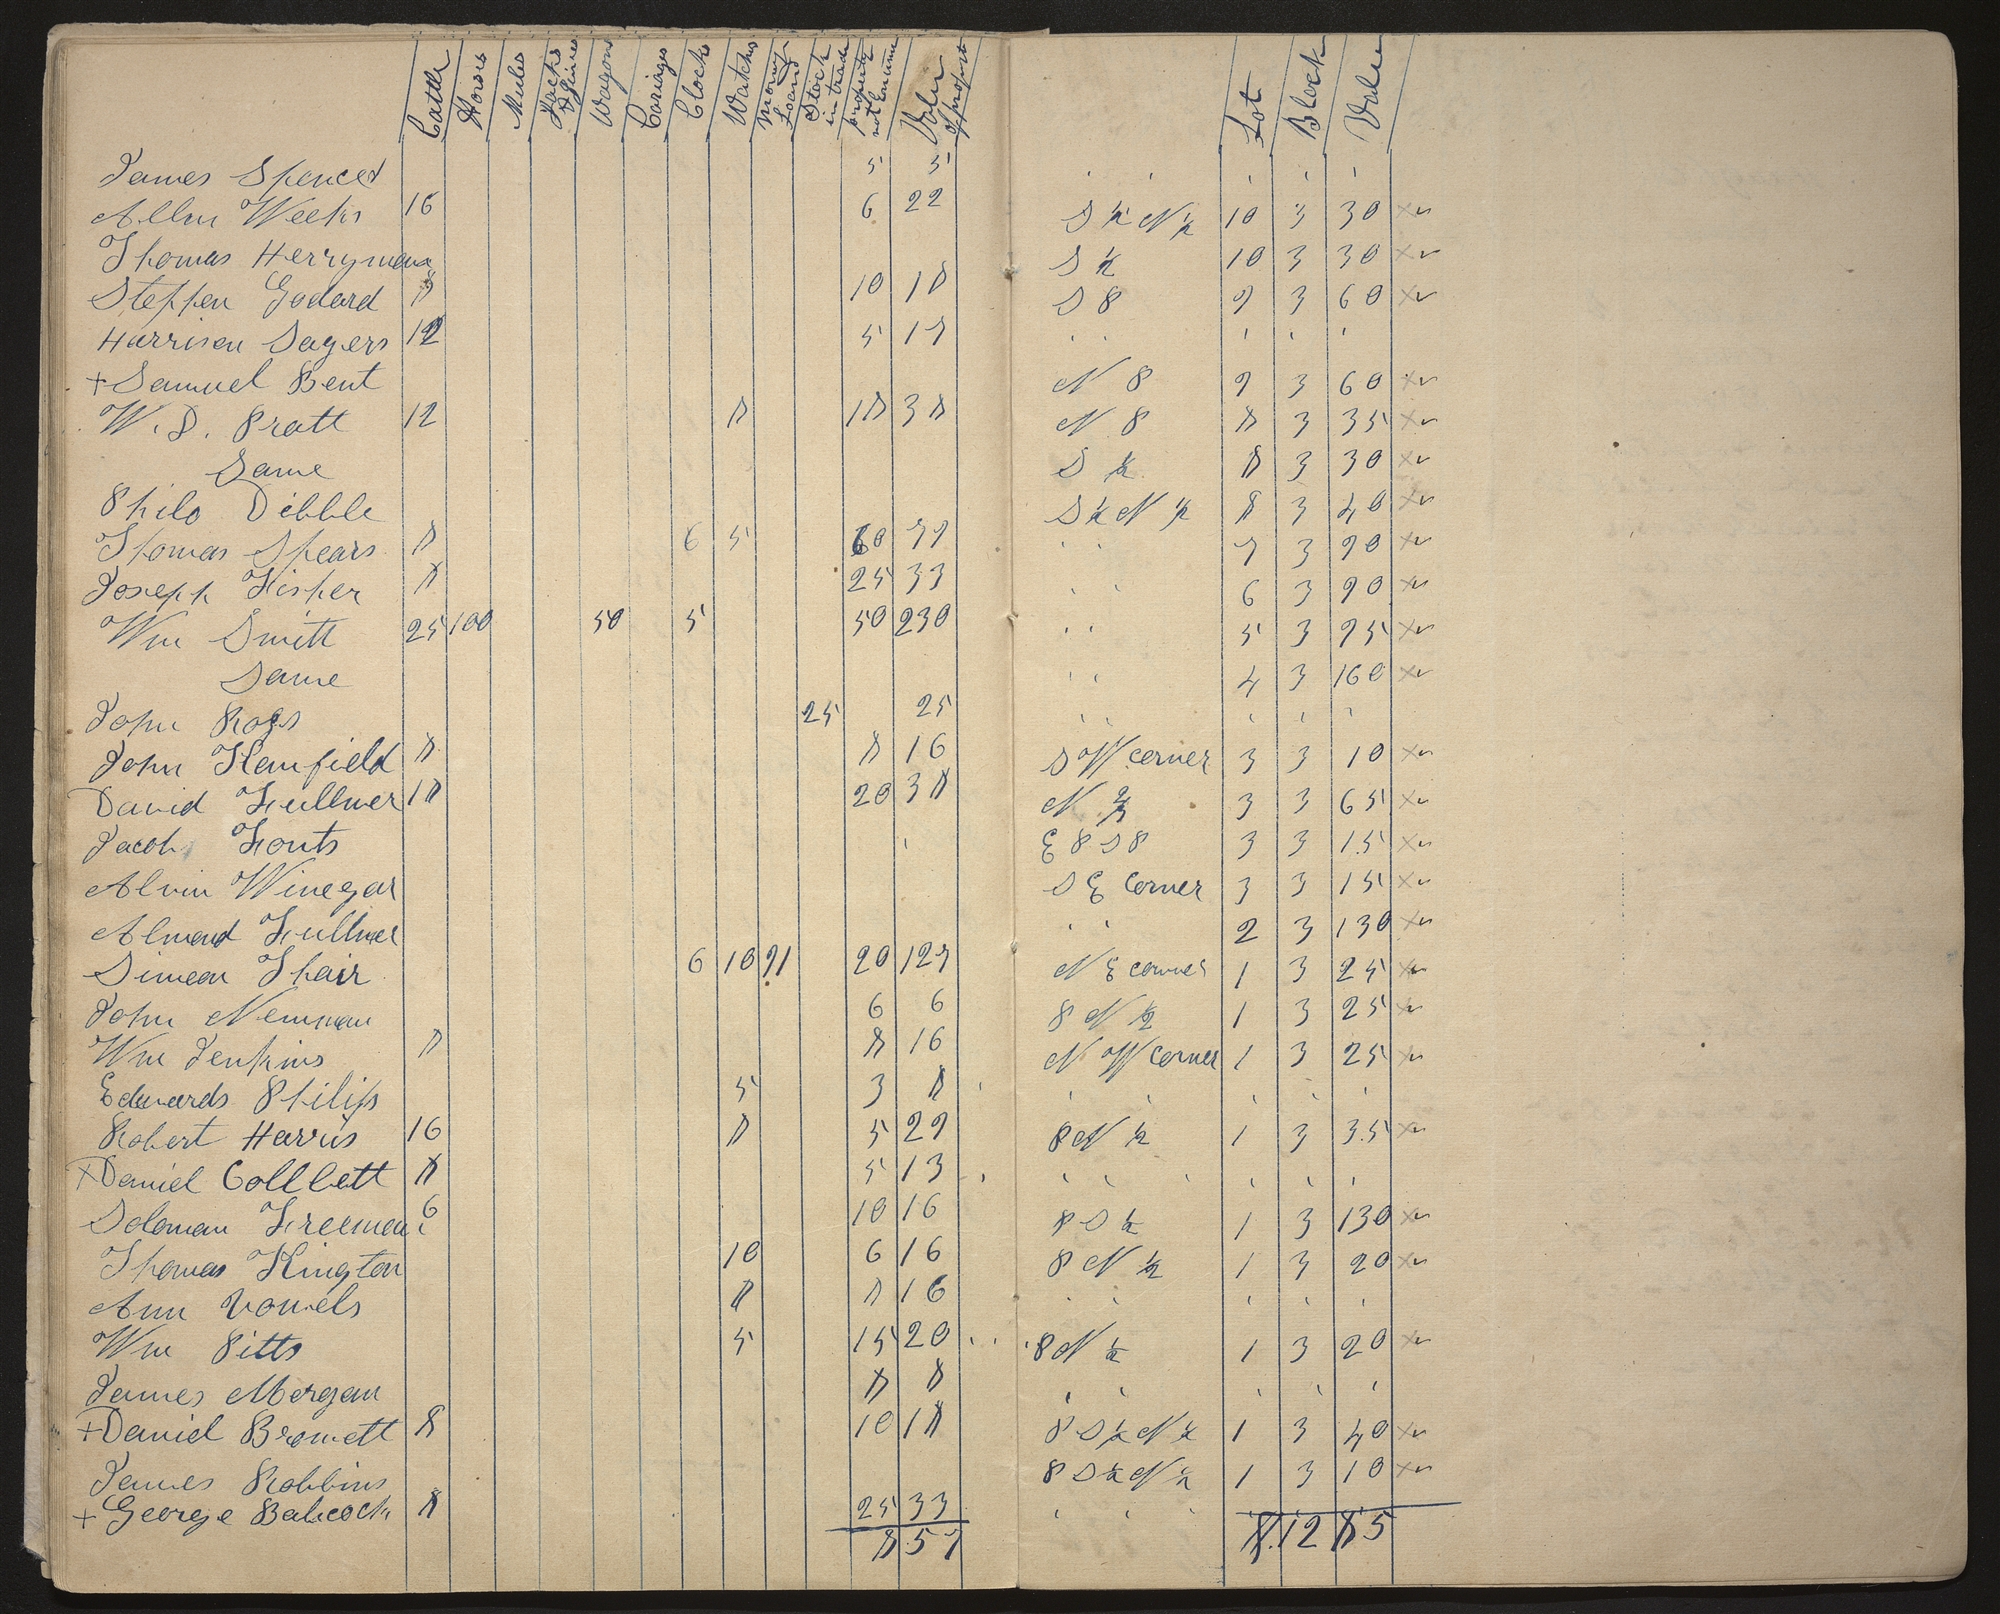 Cattle Horses Mules Jacks & Jinnes Wagons Cariages Clocks Watches Money Loand Stock in trade property not Enume Valu of propert Lot Block Value
James Spencer 5 5
Allen Weeks 16 6 22 S ½ N ½ 10 3 30
Thomas Herryman S ½ 10 3 30
Stephen Godard 8 10 18 S P 9 3 60
Harrison Sagers 12 5 17
+ Samuel Bent N P 9 3 60
W. D. Pratt 12 8 18 38 N P 8 3 35
Same S ½ 8 3 30
Philo Dibble S ½ N ½ 8 3 40
Thomas Spears 8 6 5 60 79 7 3 90
Joseph Fisher 8 25 33 6 3 90
Wm Smith 25 100 50 5 50 230 5 3 95
Same 4 3 160
John Ross 25 25
John Hanfield 8 8 16 S W corner 3 3 10
David Fullmer 18 20 38 N ⅔ 3 3 65
Jacob Fouts E P S P 3 3 15
Alvin Winegar S E Corner 3 3 15
Almond Fullmer 2 3 130
Simeon Thair 6 10 91 20 127 N E corner 1 3 25
John Newman 6 6 P N ½ 1 3 25
Wm Jenkins 8 8 16 N W Corner 1 3 25
Edwards Philips 5 3 8
Robert Harris 16 8 5 29 P N ½ 1 3 35
+ Daniel Collbett 8 5 13
Soloman Freeman 6 10 16 P S ½ 1 3 130
Thomas Kington 10 6 16 P N ½ 1 3 20
Ann Vowels 8 8 16
Wm Pitts 5 15 20 P N ½ 1 3 20
James Morgan 8 8
+ Daniel Bromett 8 10 18 P S ½ N ½ 1 3 40
James Robbins P S ½ N ½ 1 3 10
+ George Babcock 8 25 33
857 $1285